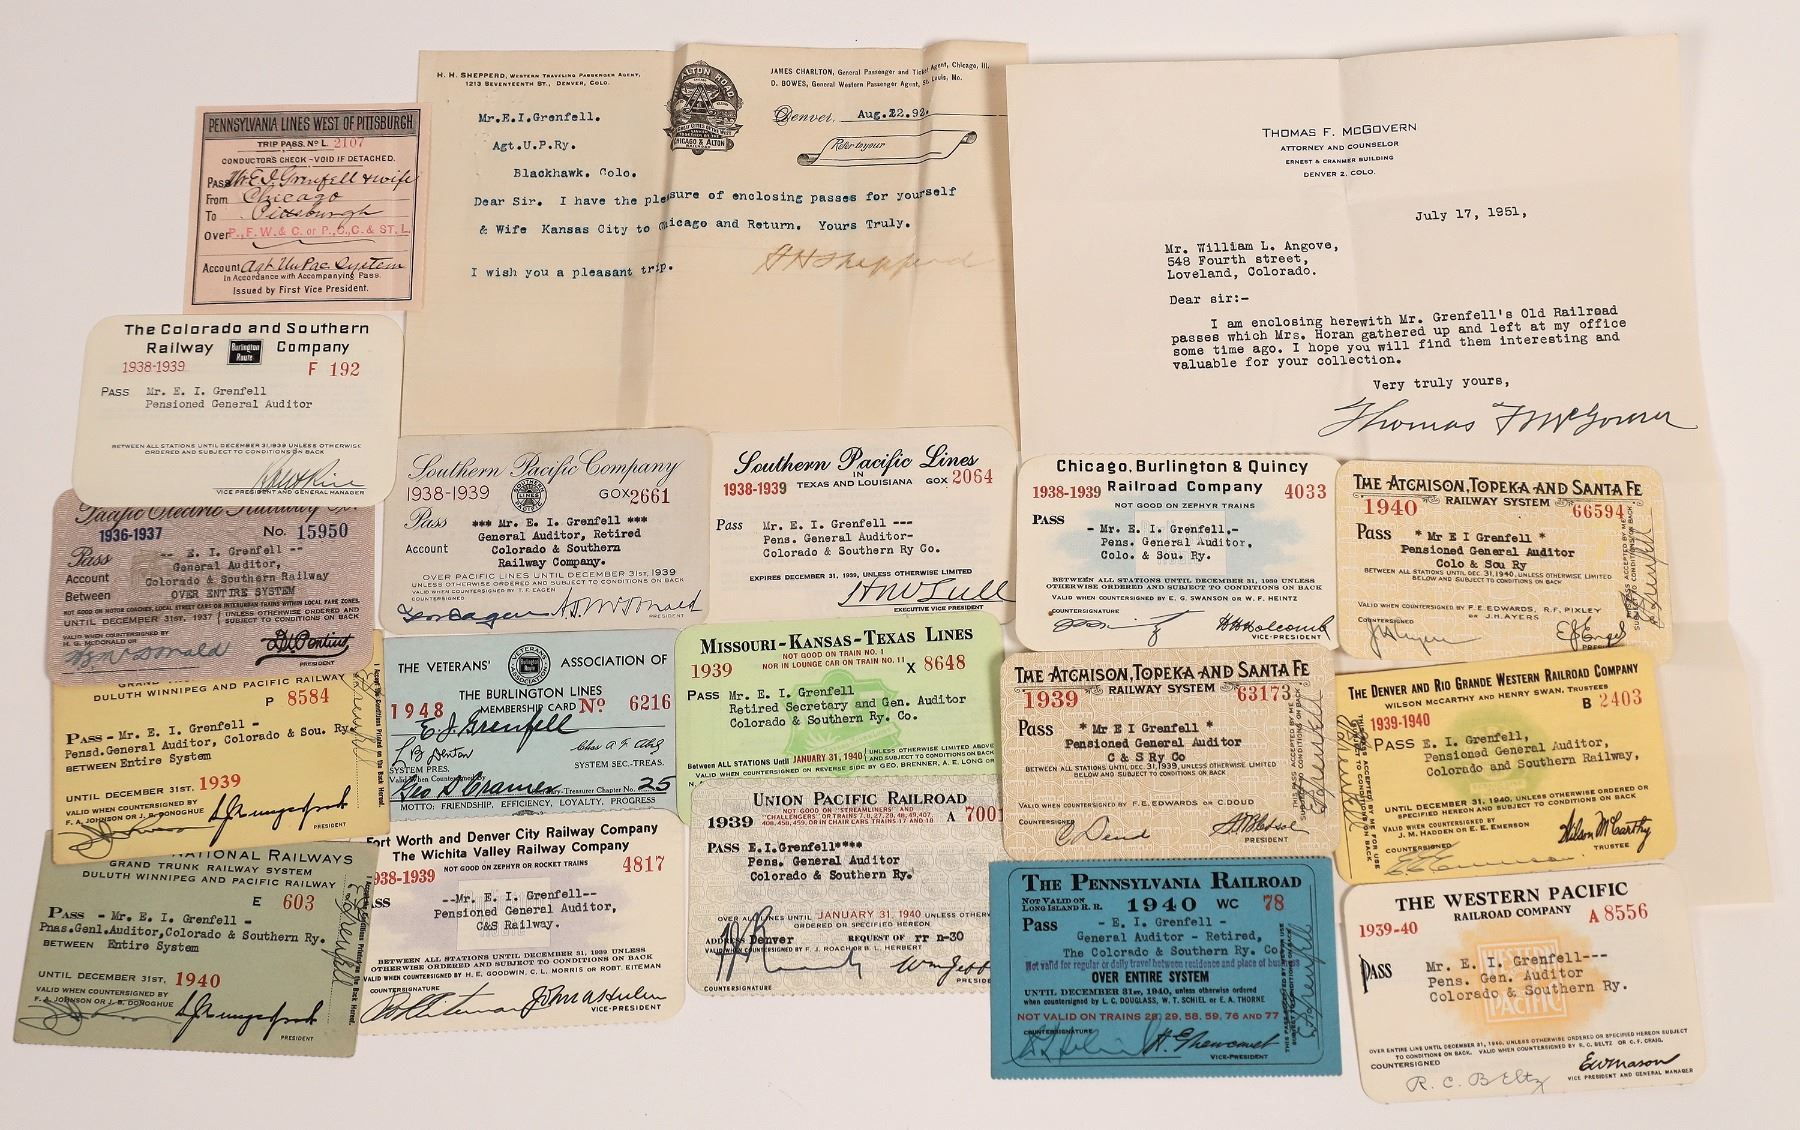 PENNSYLVANIA LINES WEST OF PITTSBURGH
TRIP PASS. Nº L 2107
CONDUCTOR'S CHECK - VOID IF DETACHED.
Pass Mr E I Grenfell & wife
From Chicago
To Pittsburgh
Over P., F.W. & C. or P., C., C. & ST. L.
Account Agt Un Pac System
In Accordance with Accompanying Pass.
Issued by First Vice President.
H. H. SHEPPERD, WESTERN TRAVELING PASSENGER AGENT,
1213 SEVENTEENTH ST., DENVER, COLO.
ALTON ROAD
CHICAGO & ALTON
RAILROAD
JAMES CHARLTON, General Passenger and Ticket Agent, Chicago, Ill.
D. BOWES, General Western Passenger Agent, St. Louis, Mo.
Denver, Aug.22.92.
Refer to your
Mr.E.I.Grenfell.
Agt.U.P.Ry.
Blackhawk. Colo.
Dear Sir. I have the pleasure of enclosing passes for yourself
& Wife Kansas City to Chicago and Return. Yours Truly.
I wish you a pleasant trip.
H H Shepperd
THOMAS F. MCGOVERN
ATTORNEY AND COUNSELOR
ERNEST & CRANMER BUILDING
DENVER 2, COLO.
July 17, 1951,
Mr. William L. Angove,
548 Fourth street,
Loveland, Colorado.
Dear sir:-
I am enclosing herewith Mr. Grenfell's Old Railroad
passes which Mrs. Horan gathered up and left at my office
some time ago. I hope you will find them interesting and
valuable for your collection.
Very truly yours,
Thomas F McGovern
The Colorado and Southern
Railway Burlington Route Company
1938-1939 F 192
PASS Mr. E. I. Grenfell
Pensioned General Auditor
BETWEEN ALL STATIONS UNTIL DECEMBER 31, 1939 UNLESS OTHERWISE
ORDERED AND SUBJECT TO CONDITIONS ON BACK
VICE PRESIDENT AND GENERAL MANAGER
Pacific Electric Railway Co.
1936-1937 No. 15950
Pass -- E. I. Grenfell --
Account General Auditor,
Colorado & Southern Railway
Between OVER ENTIRE SYSTEM
NOT GOOD ON MOTOR COACHES, LOCAL STREET CARS OR INTERURBAN TRAINS WITHIN LOCAL FARE ZONES.
UNTIL DECEMBER 31ST, 1937 UNLESS OTHERWISE ORDERED AND SUBJECT TO CONDITIONS ON BACK
VALID WHEN COUNTERSIGNED BY
H. G. MCDONALD OR
PRESIDENT
Southern Pacific Company
1938-1939 SOUTHERN PACIFIC LINES GOX 2661
Pass *** Mr. E. I. Grenfell ***
General Auditor, Retired
Account Colorado & Southern
Railway Company.
OVER PACIFIC LINES UNTIL DECEMBER 31ST, 1939
UNLESS OTHERWISE ORDERED AND SUBJECT TO CONDITIONS ON BACK
VALID WHEN COUNTERSIGNED BY T. F. EAGEN
COUNTERSIGNED
Southern Pacific Lines
IN
1938-1939 TEXAS AND LOUISIANA GOX 2064
Pass Mr. E. I. Grenfell ---
Pens. General Auditor-
Colorado & Southern Ry Co.
EXPIRES DECEMBER 31, 1939, UNLESS OTHERWISE LIMITED
EXECUTIVE VICE PRESIDENT
Chicago, Burlington & Quincy
1938-1939 Railroad Company 4033
NOT GOOD ON ZEPHYR TRAINS
PASS - Mr. E. I. Grenfell.-
Pens. General Auditor,
Colo. & Sou. Ry.
BETWEEN ALL STATIONS UNTIL DECEMBER 31, 1939 UNLESS
OTHERWISE ORDERED AND SUBJECT TO CONDITIONS ON BACK
VALID WHEN COUNTERSIGNED BY E. G. SWANSON OR W. F. HEINTZ
COUNTERSIGNATURE
H H Holcomb
VICE-PRESIDENT
THE ATCHISON, TOPEKA AND SANTA FE
1940 RAILWAY SYSTEM 66594
Pass * Mr E I Grenfell *
Pensioned General Auditor
Colo & Sou Ry
BETWEEN ALL STATIONS UNTIL DEC. 31, 1940, UNLESS OTHERWISE LIMITED
BELOW AND SUBJECT TO CONDITIONS ON BACK
VALID WHEN COUNTERSIGNED BY F. E. EDWARDS, R. F. PIXLEY
OR J. H. AYERS
COUNTERSIGNED
E J Engel
PRESIDENT
DULUTH WINNIPEG AND PACIFIC RAILWAY
P 8584
PASS - Mr. E. I. Grenfell -
Pensd.General Auditor, Colorado & Sou. Ry.
BETWEEN Entire System
UNTIL DECEMBER 31ST. 1939
VALID WHEN COUNTERSIGNED BY
F. A. JOHNSON OR J. B. DONOGHUE
PRESIDENT
I Accept the Conditions Printed on the Back Hereof.
THE VETERANS' ASSOCIATION OF
THE BURLINGTON LINES
1948 MEMBERSHIP CARD Nº 6216
E. I. Grenfell
SYSTEM PRES. SYSTEM SEC.-TREAS.
Valid When Countersigned
Geo S Cramer Secretary-Treasurer Chapter No. 25
MOTTO: FRIENDSHIP, EFFICIENCY, LOYALTY, PROGRESS
MISSOURI-KANSAS-TEXAS LINES
1939 NOT GOOD ON TRAIN NO. 1
NOR IN LOUNGE CAR ON TRAIN NO. 11 X 8648
PASS Mr. E. I. Grenfell
Retired Secretary and Gen. Auditor
Colorado & Southern Ry. Co.
Between ALL STATIONS Until JANUARY 31, 1940 UNLESS OTHERWISE LIMITED ABOVE AND SUBJECT TO CONDITIONS ON BACK
VALID WHEN COUNTERSIGNED ON REVERSE SIDE BY GEO. BRENNER, A. E. LONG OR
THE ATCHISON, TOPEKA AND SANTA FE
1939 RAILWAY SYSTEM 63173
Pass * Mr E I Grenfell *
Pensioned General Auditor
C & S Ry Co
BETWEEN ALL STATIONS UNTIL DEC. 31, 1939, UNLESS OTHERWISE LIMITED
BELOW AND SUBJECT TO CONDITIONS ON BACK
VALID WHEN COUNTERSIGNED BY F. E. EDWARDS OR C. DOUD
COUNTERSIGNED
C Doud
PRESIDENT
THE DENVER AND RIO GRANDE WESTERN RAILROAD COMPANY
WILSON MCCARTHY AND HENRY SWAN, TRUSTEES
1939-1940 B 2403
PASS E. I. Grenfell,
Pensioned General Auditor,
Colorado and Southern Railway,
UNTIL DECEMBER 31, 1940, UNLESS OTHERWISE ORDERED OR
SPECIFIED HEREON AND SUBJECT TO CONDITIONS ON BACK
VALID WHEN COUNTERSIGNED BY
J. M. HADDEN OR E. E. EMERSON
COUNTERSIGNED
Wilson McCarthy
TRUSTEE
NATIONAL RAILWAYS
GRAND TRUNK RAILWAY SYSTEM
DULUTH WINNIPEG AND PACIFIC RAILWAY
E 603
PASS - Mr. E. I. Grenfell -
Pnas.Genl.Auditor,Colorado & Southern Ry.
BETWEEN Entire System
UNTIL DECEMBER 31ST. 1940
VALID WHEN COUNTERSIGNED BY
F. A. JOHNSON OR J. B. DONOGHUE
PRESIDENT
I Accept the Conditions Printed on the Back Hereof.
Fort Worth and Denver City Railway Company
The Wichita Valley Railway Company
NOT GOOD ON ZEPHYR OR ROCKET TRAINS
938-1939 4817
ASS --Mr. E. I. Grenfell--
Pensioned General Auditor,
C&S Railway.
BETWEEN ALL STATIONS UNTIL DECEMBER 31, 1939 UNLESS
OTHERWISE ORDERED AND SUBJECT TO CONDITIONS ON BACK
VALID WHEN COUNTERSIGNED BY H. E. GOODWIN, C. L. MORRIS OR ROBT. EITEMAN
COUNTERSIGNATURE
VICE-PRESIDENT
UNION PACIFIC RAILROAD
1939 NOT GOOD ON "STREAMLINERS" AND A 7001
PASS E.I.Grenfell****
Pens. General Auditor
Colorado & Southern Ry.
OVER ALL LINES UNTIL JANUARY 31, 1940 UNLESS OTHERWISE
ORDERED OR SPECIFIED HEREON
ADDRESS Denver REQUEST OF rr n-30
VALID WHEN COUNTERSIGNED BY F. J. ROACH OR B. L. HERBERT
COUNTERSIGNATURE
PRESIDENT
THE PENNSYLVANIA RAILROAD
NOT VALID ON LONG ISLAND R. R. 1940 WC 78
Pass - E. I. Grenfell -
General Auditor - Retired,
The Colorado & Southern Ry. Co.
Not valid for regular or daily travel between residence and place of business
OVER ENTIRE SYSTEM
UNTIL DECEMBER 31ST, 1940, unless otherwise ordered
when countersigned by L. C. DOUGLASS, W. T. SCHIEL or E. A. THORNE
NOT VALID ON TRAINS 28, 29, 58, 59, 76 AND 77
COUNTERSIGNATURE
VICE-PRESIDENT
THE WESTERN PACIFIC
RAILROAD COMPANY
1939-40 A 8556
PASS Mr. E. I. Grenfell---
Pens. Gen. Auditor
Colorado & Southern Ry.
WESTERN PACIFIC
OVER ENTIRE LINE UNTIL DECEMBER 31, 1940, UNLESS OTHERWISE ORDERED OR SPECIFIED HEREON SUBJECT
TO CONDITIONS ON BACK. VALID WHEN COUNTERSIGNED BY R. C. BELTZ OR C. F. CRAIG.
COUNTERSIGNED
R. C. Beltz
E W Mason
VICE PRESIDENT AND GENERAL MANAGER